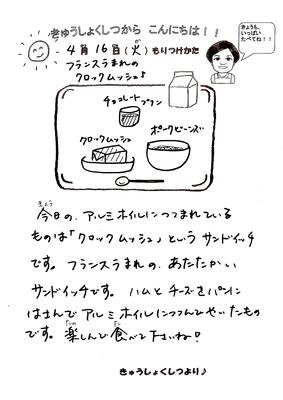 きゅうしょくしつから こんにちは!!
きょうも、
いっぱい
たべてね!!
4月 16日(火) もりつけかた
フランスうまれの
クロックムッシュ♪
チョコレートプリン
クロックムッシュ
ポークビーンズ
今日の、アルミホイルにつつまれている
ものは「クロックムッシュ」という サンドイッチ
です。フランスうまれの、あたたかい
サンドイッチです。ハムとチーズをパンに
はさんで アルミホイルにつつんでやいたもの
です。楽しんで食べて下さいね!
きゅうしょくしつより♪